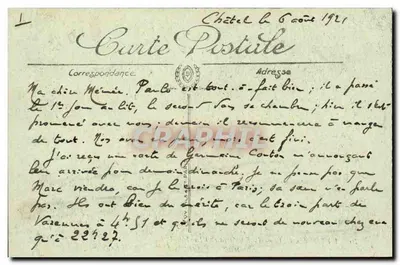 I
Châtel le 6 août 1921
Carte Postale
Correspondance
Adresse
Ma chère Mémée. Paulo est tout-à-fait bien ; il a passé
le 1er jour au lit, le second dans sa chambre ; hier il s'est
promené avec nous ; demain il recommencera à manger
de tout. Nos est fini.
J'ai reçu une carte de Germaine m'annonçant
leur arrivée pour demain dimanche, je ne pense pas que
Marc viendra, car je le crois à Paris, sa sœur n'en parle
pas. Ils ont bien du mérite, car le train part de
Varennes à 4h51 et qu'ils ne seront de nouveau chez eux
qu'à 22h27.